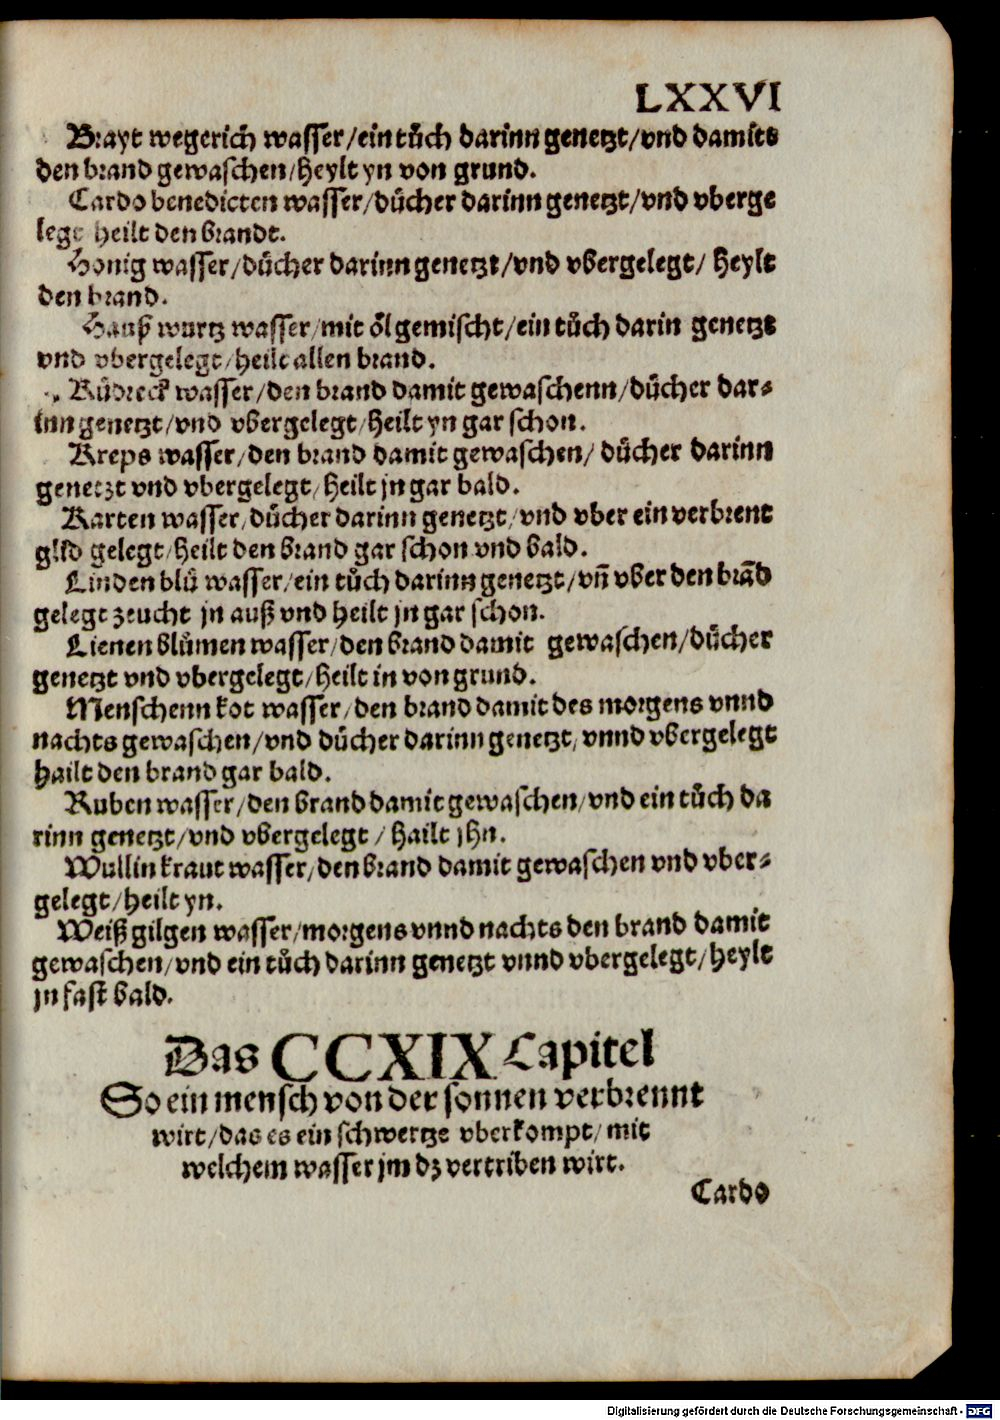 LXXVI
Brayt wegerich wasser/ein tuͦch darinn genetzt/vnd damits
den brand gewaschen/heylt yn von grund.
Cardo benedicten wasser/duͤcher darinn genetzt/vnd vberge
legt heilt den brandt.
Honig wasser/duͤcher darinn genetzt/vnd vbergelegt/ heylt
den brand.
Hauß wurtz wasser/mit oͤl gemischt/ein tuͦch darin genetzt
vnd vbergelegt/heilt allen brand.
Kuͤdreck wasser/den brand damit gewaschenn/duͤcher dar⸗
inn genetzt/vnd vbergelegt/heilt yn gar schon.
Kreps wasser/den brand damit gewaschen/ duͤcher darinn
genetzt vnd vbergelegt/heilt jn gar bald.
Karten wasser/duͤcher darinn genetzt/vnd vber ein verbrent
glid gelegt/heilt den brand gar schon vnd bald.
Linden bluͤ wasser/ein tuͦch darinn genetzt/vñ vber den brãd
gelegt zeucht jn auß vnd heilt jn gar schon.
Lienen bluͦmen wasser/den brand damit gewaschen/duͤcher
genetzt vnd vbergelegt/heilt in von grund.
Menschenn kot wasser/den brand damit des morgens vnnd
nachts gewaschen/vnd duͤcher darinn genetzt/vnnd vbergelegt
hailt den brand gar bald.
Ruben wasser/den brand damit gewaschen/vnd ein tuͦch da
rinn genetzt/vnd vbergelegt / hailt jhn.
Wullin kraut wasser/den brand damit gewaschen vnd vber⸗
gelegt/heilt yn.
Weiß gilgen wasser/morgens vnnd nachts den brand damit
gewaschen/vnd ein tuͦch darinn genetzt vnnd vbergelegt/heylt
jn fast bald.
Das CCXIX Capitel
So ein mensch von der sonnen verbrennt
wirt/das es ein schwertze vberkompt/mit
welchem wasser jm dz vertriben wirt.
Cardo
Digitalisierung gefördert durch die Deutsche Forschungsgemeinschaft - DFG